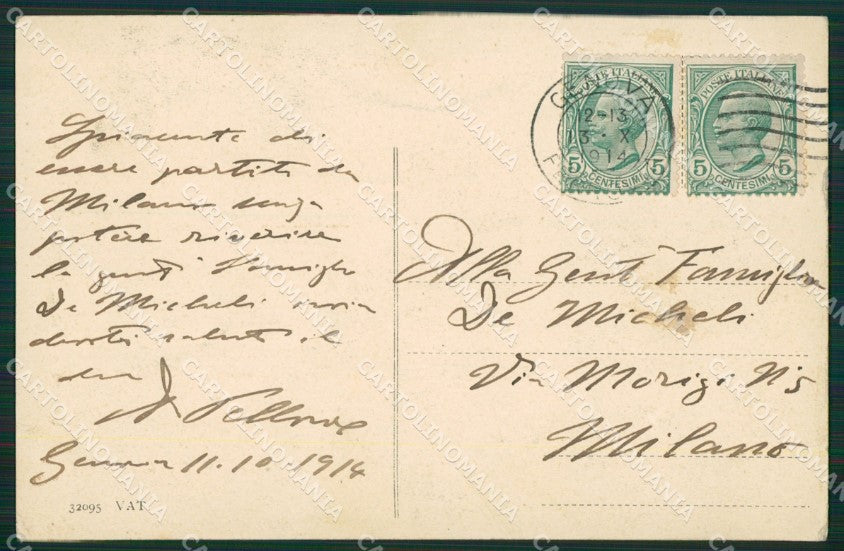 Spiacente di
essere partito da
Milano senza
potere riverire
la gent. Famiglia
De Micheli invia
devoti saluti il
Genova 11.10.1914
32095 VAT
Alla Gent. Famiglia
De Micheli
Via Morigi N 5
Milano
GENOVA
12-13
13 X
1914
POSTE ITALIANE
5 CENTESIMI 5
POSTE ITALIANE
5 CENTESIMI 5
CARTOLINOMANIA